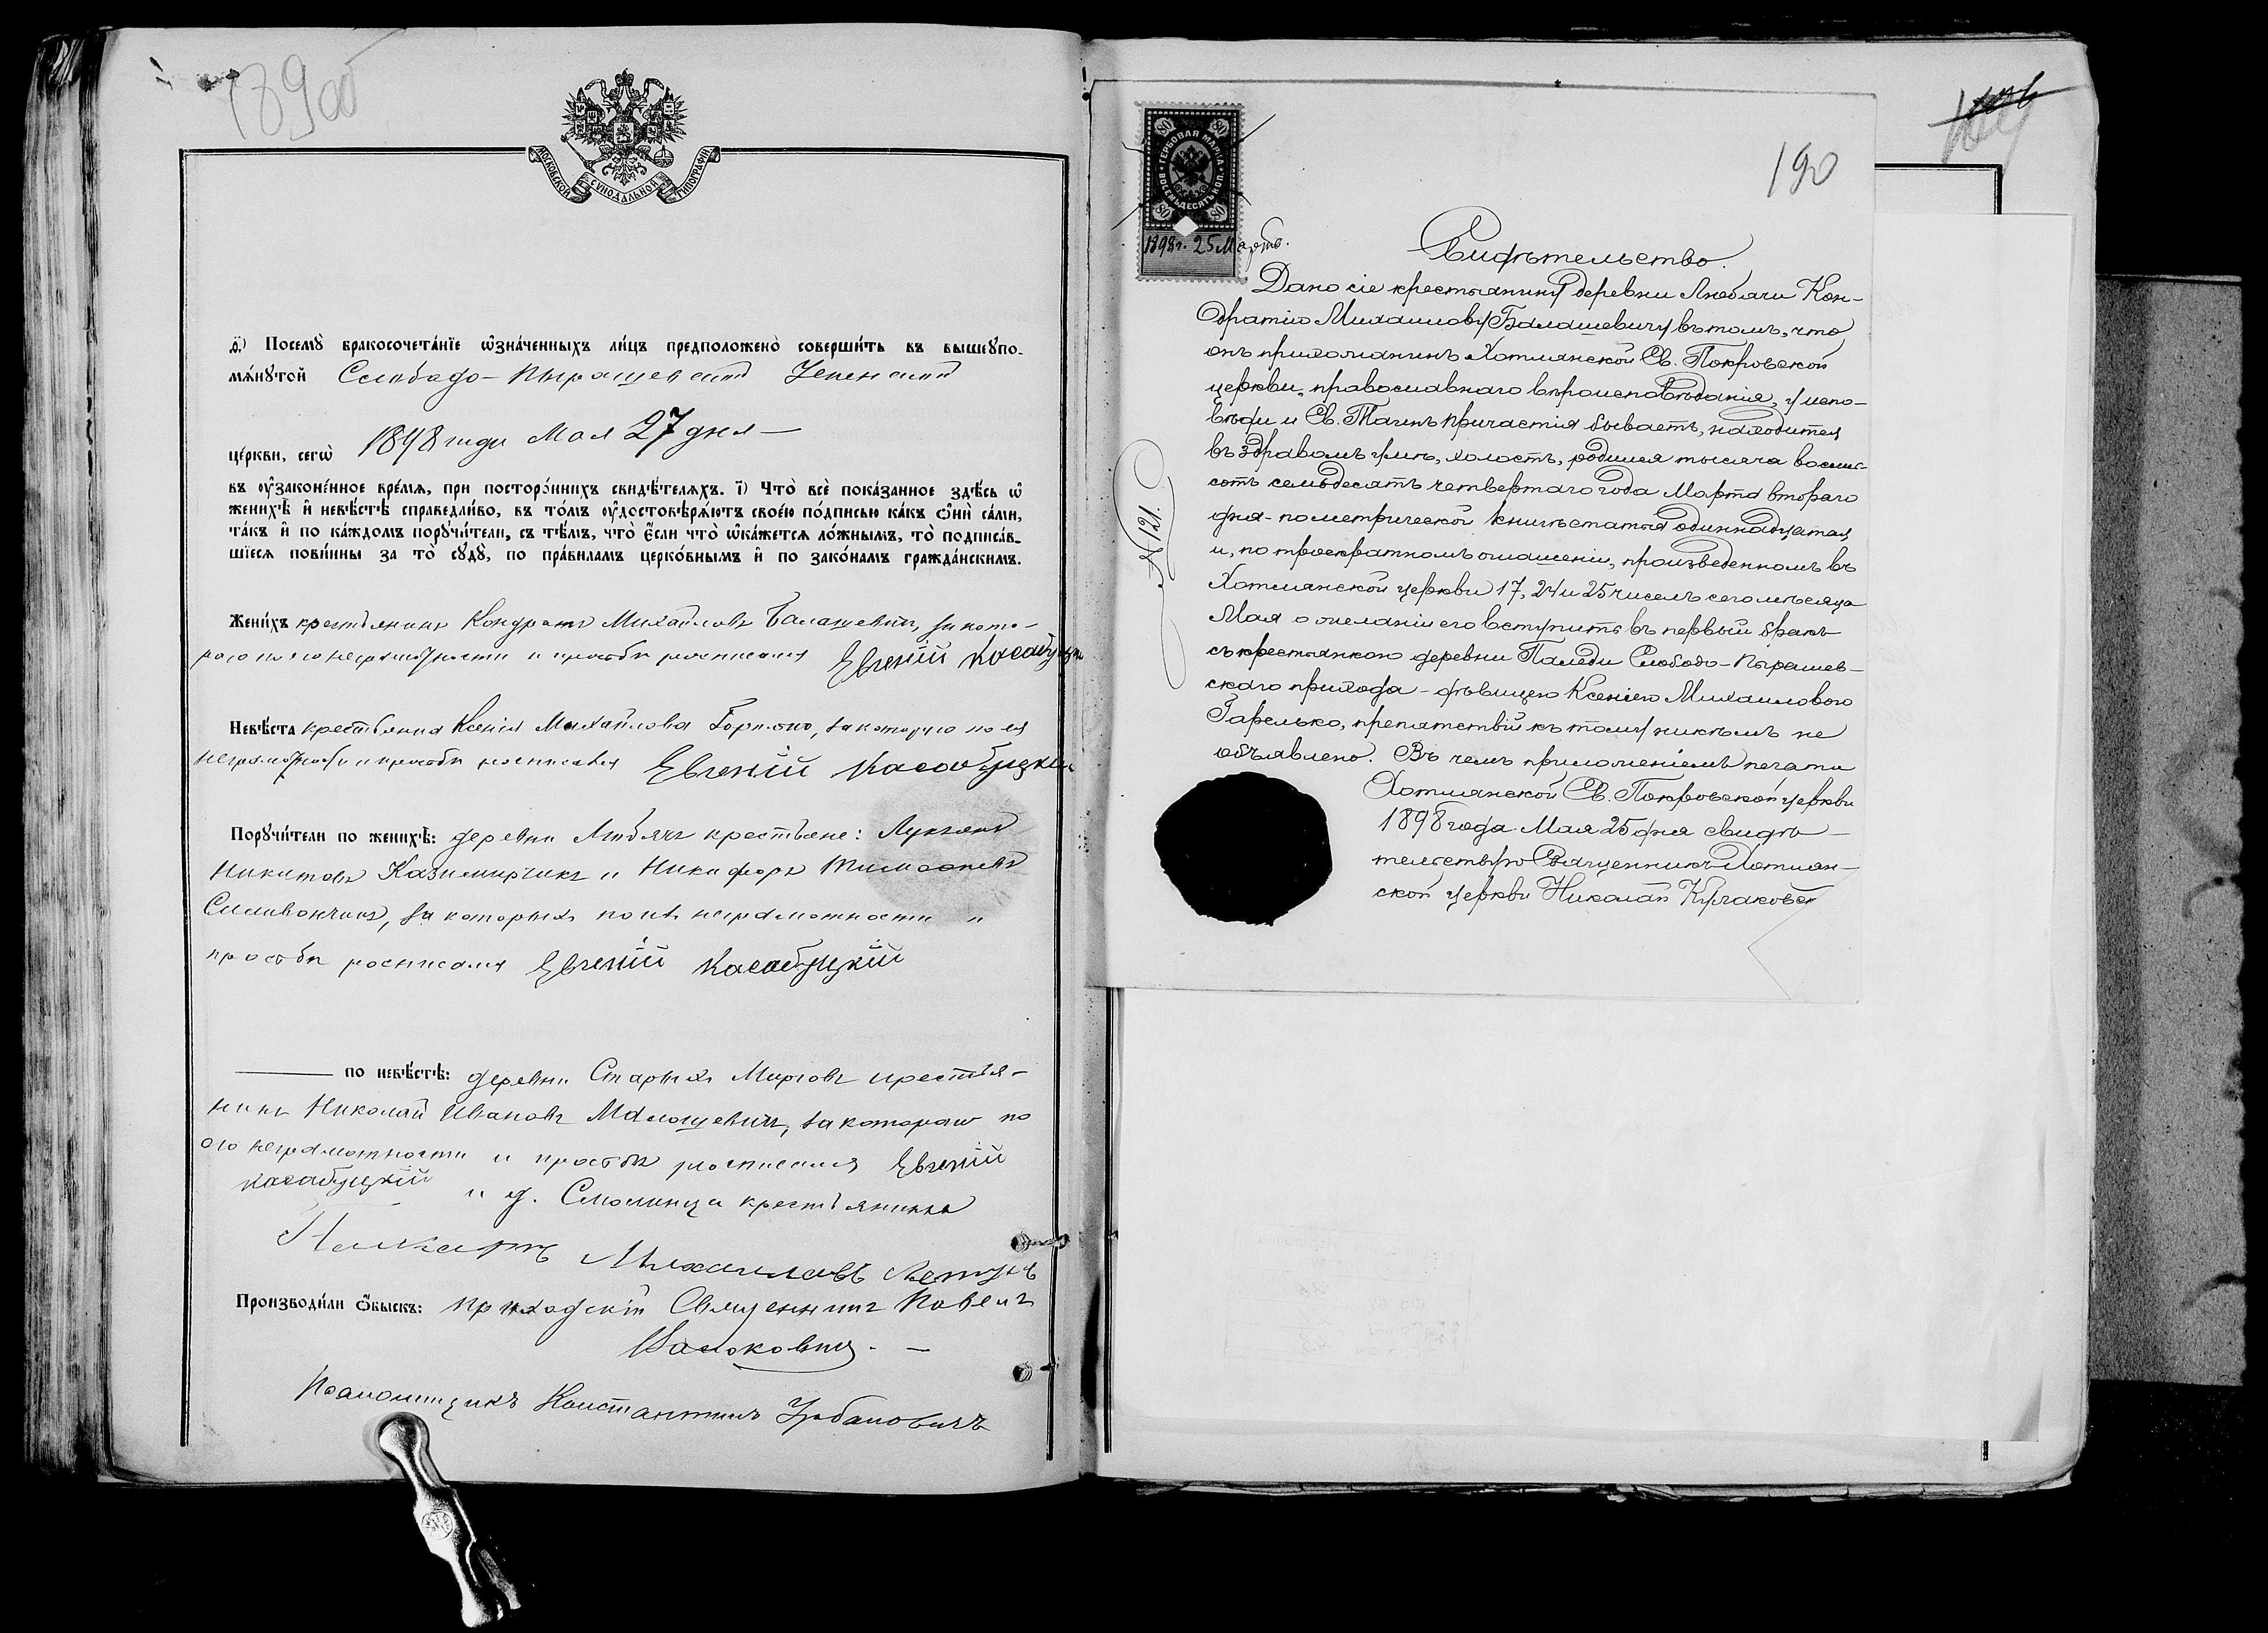 189об
МОСКОВСКОЙ СѴНОДАЛЬНОЙ ТИПОГРАФІИ
д҃) Посемꙋ̀ бракосочета́нїе ѡ҆зна́ченныхъ ли́цъ предположено̀ соверши́ть въ вышеꙋпо-
мѧ́нꙋтой Слободо-Пырашевской Успенской
це́ркви, сегѡ̀ 1898 года Мая 27 дня —
въ ᲂу҆законе́нное вре́мѧ, при посторо́ннихъ свидѣ́телѧхъ. і҃) Что̀ всѐ пока́занное здѣ́сь ѡ҆
женихѣ̀ и҆ невѣ́стѣ справедли́во, въ то́мъ ᲂу҆достовѣрѧ́ютъ свое́ю по́дписью ка́къ ѻ҆нѝ са́ми,
та́къ и҆ по ка́ждомъ порꙋчи́тели, съ тѣ́мъ, что̀ є҆́сли что̀ ѡ҆ка́жетсѧ ло́жнымъ, то̀ подписа́в-
шїесѧ пови́нны за то̀ сꙋдꙋ̀, по пра́виламъ церко́внымъ и҆ по зако́намъ гражда́нскимъ.
Жени́хъ крестьянинъ Кондратъ Михайловъ Балашевичъ, за кото-
раго по его неграмотности и просьбѣ росписался Евгеній Касабуцкій
Невѣ́ста крестьянка Ксенія Михайлова Горелко, за которую по ея
неграмотности и просьбѣ росписался Евгеній Касабуцкій
Порꙋчи́тели по женихѣ̀: деревни Любячъ крестьяне: Лукьянъ
Никитовъ Казимирчикъ и Никифоръ Тимоѳеевъ
Селивончикъ, за которыхъ по ихъ неграмотности и
просьбѣ росписался Евгеній Касабуцкій
по невѣ́стѣ: деревни Старыхъ крестья-
нинъ Николай Ивановъ Малашевичъ, за котораго по
его неграмотности и просьбѣ росписался Евгеній
Касабуцкій и д. Смолинца крестьянинъ
Михаиловъ
Производи́ли ѻ҆́быскъ: приходскій Священникъ Павелъ
Псаломщикъ Константинъ Урбановичъ
190
ГЕРБОВАЯ МАРКА
ВОСЕМЬДЕСЯТЪ КОП.
80 80
80 80
1898 г. 25 Марта.
№ 121.
Свидѣтельство.
Дано сіе крестьянину деревни Любячи Кон-
дратію Михаилову Балашевичу въ томъ, что
онъ прихожанинъ Хотлянской Св. Покровской
церкви, православнаго вѣроисповѣданія, у испо-
вѣди и Св. Таинъ Причастія бываетъ, находится
въ здравомъ умѣ, холостъ, родился тысяча восемь-
сотъ семьдесятъ четвертаго года Марта втораго
дня - по метрической книгѣ статья одиннадцатая,
и, по троекратномъ оглашеніи, произведенномъ въ
Хотлянской церкви 17, 24 и 25 чиселъ сего мѣсяца
Мая о желаніи его вступить въ первый бракъ
съ крестьянкою деревни Паледи Слободо-Пырашев-
скаго прихода - дѣвицею Ксеніею Михаиловою
Гарелько, препятствій къ тому никѣмъ не
объявлено. Въ чемъ приложеніемъ печати
Хотлянской Св. Покровской церкви
1898 года Мая 25 дня свидѣ-
тельствую Священникъ Хотлян-
ской церкви Николай Кулаковскій